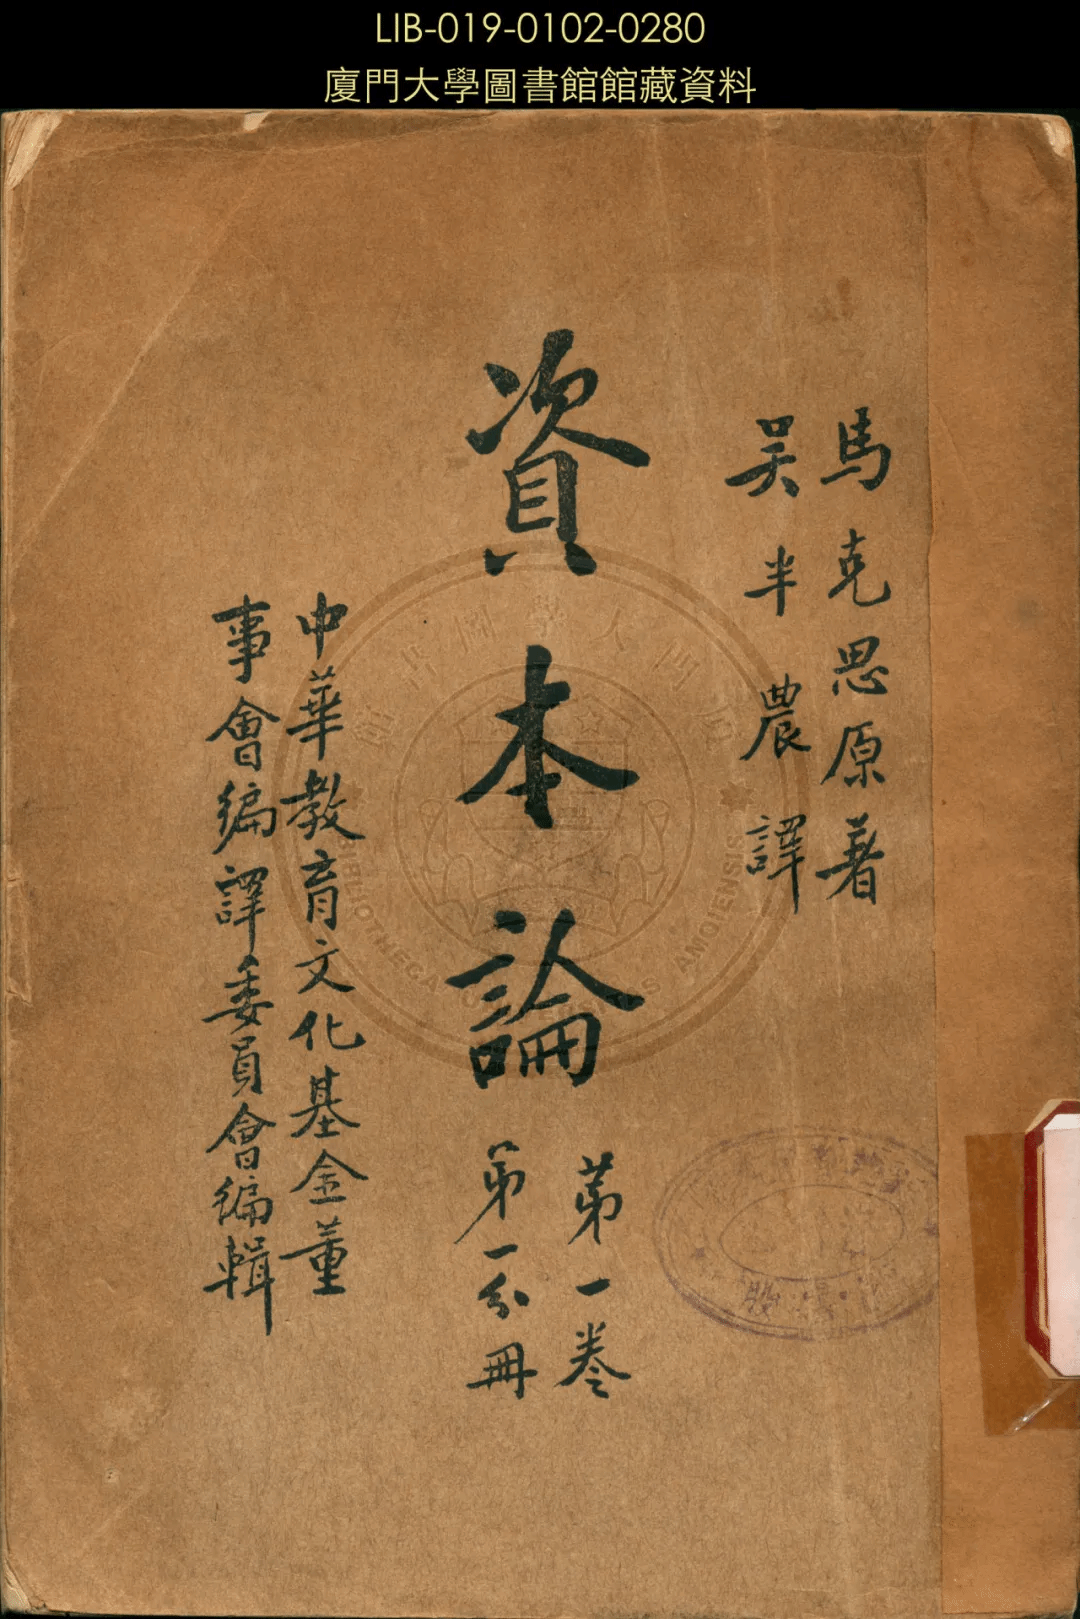 LIB-019-0102-0280
廈門大學圖書館館藏資料
馬克思原著
吴半農譯
資本論
第一卷
第一分冊
中華教育文化基金董
事會編譯委員會編輯
BIBLIOTHECA UNIVERSITATIS AMOIENSIS